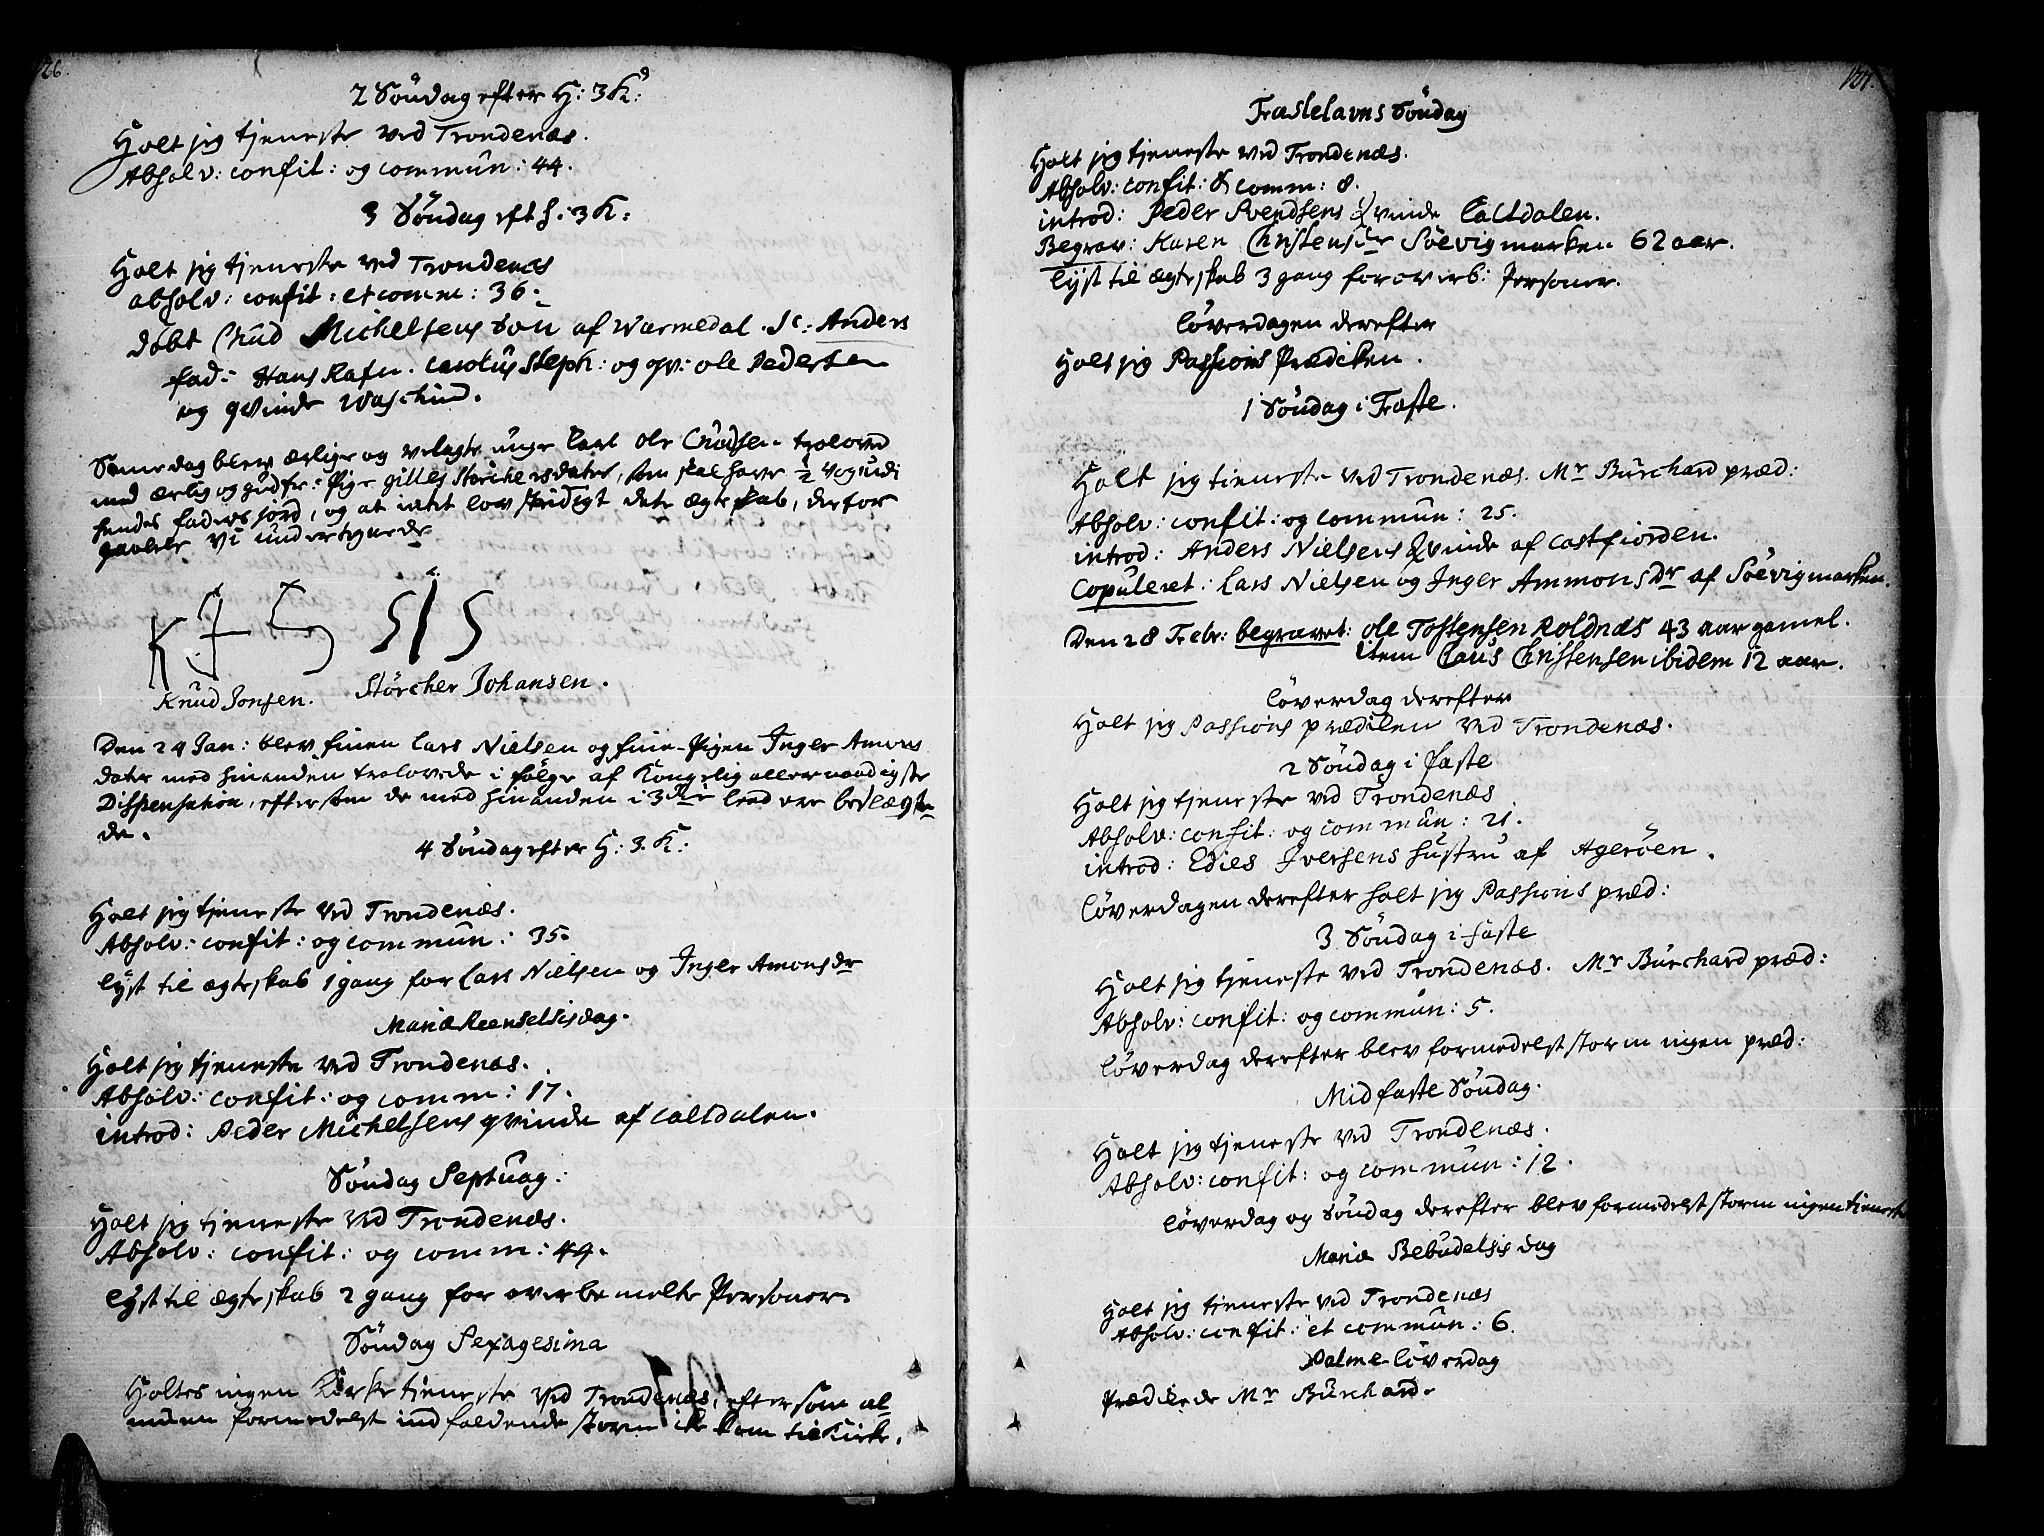 126.
2 Söndag efter H: 3 K:
Holt jeg tjeneste ved Trondenæs.
Absolv: confit: og commun: 44.
3 Söndag eft H: 3 K:
Holt jeg tjeneste ved Trondenæs
absolv: confit: et comm: 36.
döbt Chud Michelsens Sön af Warmedal. Sc: Anders
fad: Hans Rafn. Carolus Steph: og qv: ole Pedersen
og qvinde
Samme dag blev ærlige og velagte unge Carl Ole Chudsen trolovet
med ærlig og gudfr: Pige gilles Störchersdater, som skal have ½ Vog udi
hendes faders jord, og at intet lov stridigt dette ægteskab, derfor
Vi underteignede
K I S S I S
Knud Jonsen. Störcher Johansen.
Den 24 Jan: blev finen Lars Nielsen og fine-Pigen Inger Amons
dater med hinanden trolovede i fölge af Kongelig allernaadigste
Dispensation, eftersom de med hinanden i 3die leed ere beslægte-
de.
4 Söndag efter H: 3. K:
Holt jeg tjeneste ved Trondenæs.
Absolv: confit: og commun: 35.
lyst til ægteskab 1 gang for Lars Nielsen og Inger Amonsdr
Mariæ Reenselsis dag.
Holt jeg tjeneste ved Trondenæs.
Absolv: confit: og comm: 17.
introd: Peder Michelsens qvinde af Caltdalen.
Söndag Septuag:
Holt jeg tjeneste ved Trondenæs.
Absolv: confit: og comm: 44.
lyst til ægteskab 2 gang for overbemelte Personer.
Söndag Sexagesima
Holtes ingen Kirke tjeneste ved Trondenæs, eftersom al-
muen formedelst indfaldende storm ike kom til Kirke.
127.
Fastelavns Söndag
Holt jeg tjeneste ved Trondenæs.
Absolv: confit: & comm: 8.
introd: Peder Svendsens Qvinde Caltdalen.
Begrav: Karen Christensdr Söevigmarken 62 aar.
lyst til ægteskab 3 gang for overb: Personer.
löverdagen derefter
Holt jeg Passions Prædiken.
1 Söndag i Faste.
Holt jeg tieneste ved Trondenæs. Mr Burchard præd:
Absolv: confit: og commun: 25.
introd: Anders Nielsens Qvinde af Castfiorden.
Copuleret: Lars Nielsen og Inger Ammonsdr af Söevigmarken.
Den 28 Febr: begravet: ole Tostensen Roldnæs 43 aar gamel.
item Claus Christensen ibidem 12 aar.
löverdag derefter
Holt jeg Passions prædiken ved Trondenæs.
2 Söndag i faste
Holt jeg tjeneste ved Trondenæs
Absolv: confit: og commun: 21.
introd: Edies Iversens hustru af Ageröen.
löverdagen derefter holt jeg Passions præd:
3 Söndag i faste
Holt jeg tjeneste ved Trondenæs. Mr Burchard præd:
Absolv: confit: og commun: 5.
löverdag derefter blev formedelst storm ingen præd:
Midfaste Söndag.
Holt jeg tjeneste ved Trondenæs.
Absolv: confit: og commun: 12.
löverdag og Söndag derefter blev formedelst storm ingen tieneste
Mariæ Bebudelsis dag
Holt jeg tieneste ved Trondenæs
Absolv: confit: et commun: 6.
Palme-löverdag
Prædikede Mr Burchard.